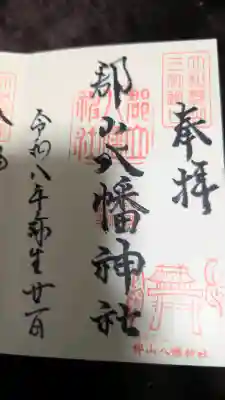 奉拝
郡山八幡神社
令和八年弥生廿一日
郡山八幡神社